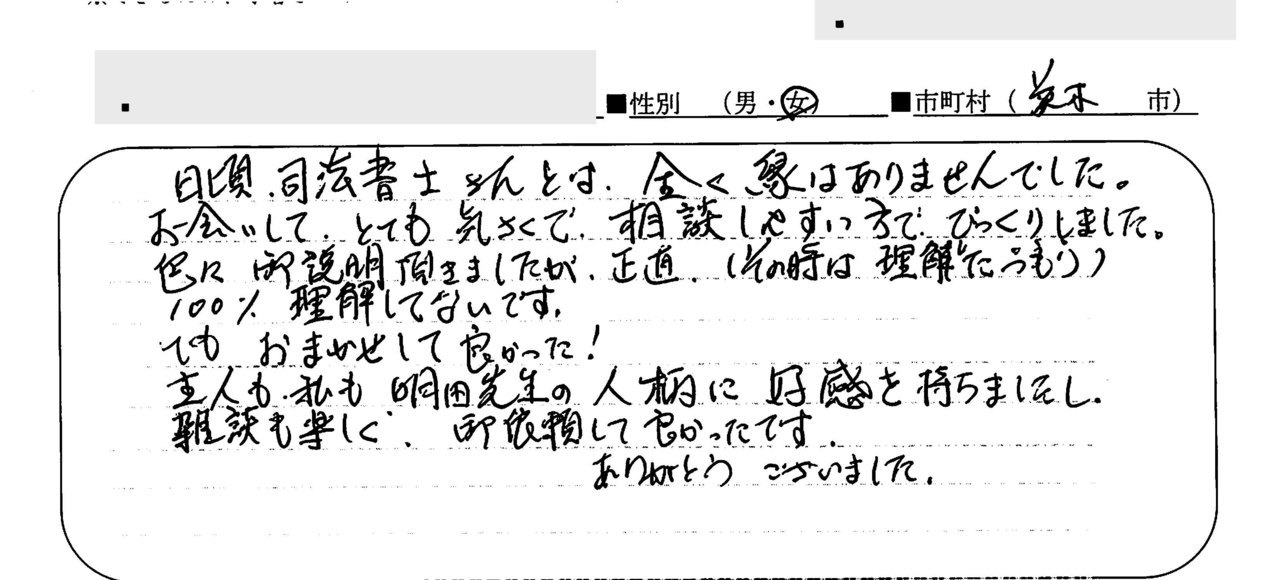 ■性別 (男・女) ■市町村 (茨木 市)
日頃、司法書士さんとは、全く縁はありませんでした。
お会いして、とても気さくで、相談しやすい方で、びっくりしました。
色々御説明頂きましたが、正直、(その時は理解したつもり)
100% 理解してないです。
でも おまかせして良かった!
主人も、私も 明田先生の人柄に 好感を持ちましたし、
雑談も楽しく、御依頼して良かったです。
ありがとう ございました。